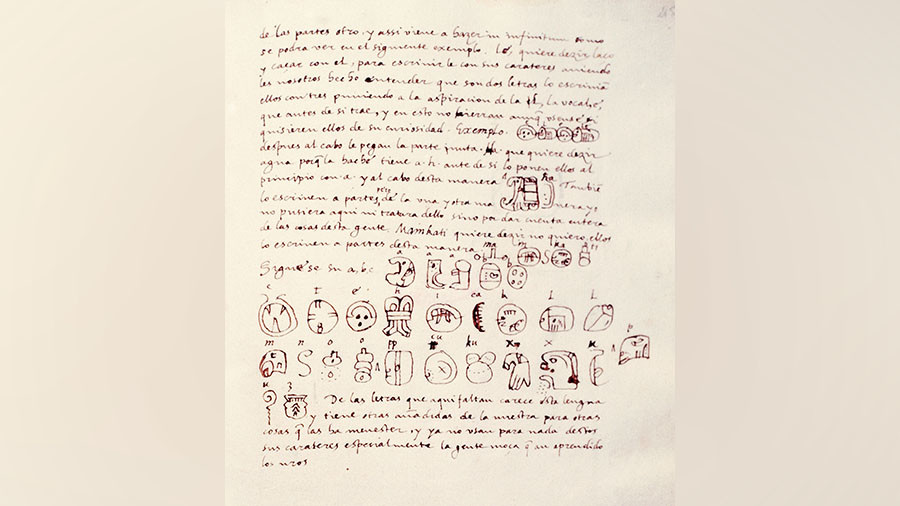 de las partes otro, y assi viene a hazer in infinitum como
se podra ver en el siguiente exemplo. Lé, quiere dezir laço
y caçar con el, para escrivirle con sus carateres aviendo
les nosotros hecho entender que son dos letras lo escrivian
ellos con tres puniendo a la aspiracion de la l, la vocal é,
que antes de si trae, y en esto no hierran aunq usense si
quisieren ellos de su curiosidad. Exemplo.
despues al cabo le pegan la parte junta. Ha. que quiere dezir
agua porq la haché tiene a. h. ante de si lo ponen ellos al
principio con .a. y al cabo desta manera a ha Tambie
lo escriven a partes pero de la una y otra ma nera, yo
no pusiera aqui ni tratara dello sino por dar cuenta entera
de las cosas desta gente. Mainkati quiere dezir no quiero, ellos
lo escriven a partes desta manera ma i n ka ti
Siguese su a, b, c. a a a b b
c t e h i ca k l l
m n o o pp p cu ku x x u
u z
De las letras que aqui faltan carece esta lengua
y tiene otras añadidas de la nuestra para otras
cosas q las ha menester, y ya no usan para nada destos
sus carateres especialmente la gente moça q an aprendido
los nros